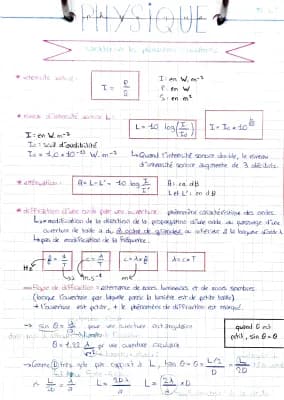 PHYSIQUE
* intensité sonore : I = P/S I : en W.m⁻²
P : en W
S : en m²
* niveau d'intensité sonore L : L = 10 log(I/I₀) I = I₀ × 10^(L/10)
I : en W.m⁻²
I₀ : seuil d'audibilité
I₀ = 1,0 × 10⁻¹² W.m⁻² ↳ Quand l'intensité sonore double, le niveau
d'intensité sonore augmente de 3 décibels.
* atténuation : A = L - L' = 10 log I/I' A : en dB
L et L' : en dB
* diffraction d'une onde par une ouverture : phénomène caractéristique des ondes
↳ modification de la direction de propagation d'une onde au passage d'une
ouverture de taille a du même ordre de grandeur ou inférieur à la longueur d'onde λ
↳ pas de modification de la fréquence.
Hz f = 1/T c = λ/T c = λ × f λ = c × T
s m.s⁻¹ m
Figure de diffraction : alternance de zones lumineuses et de zones sombres
(lorsque l'ouverture par laquelle passe la lumière est de petite taille)
+ l'ouverture est petite, + le phénomène de diffraction est marqué.
→ sin θ = λ/a pour une ouverture rectangulaire
θ = 1,22 λ/ pour une ouverture circulaire
quand θ est
petit, sin θ = θ
→ Comme D très grde par rapport à L, tan θ ≈ θ = L/2 / D = L/2D
L/2D = λ/a L = 2Dλ/a L = 2λ/a × D